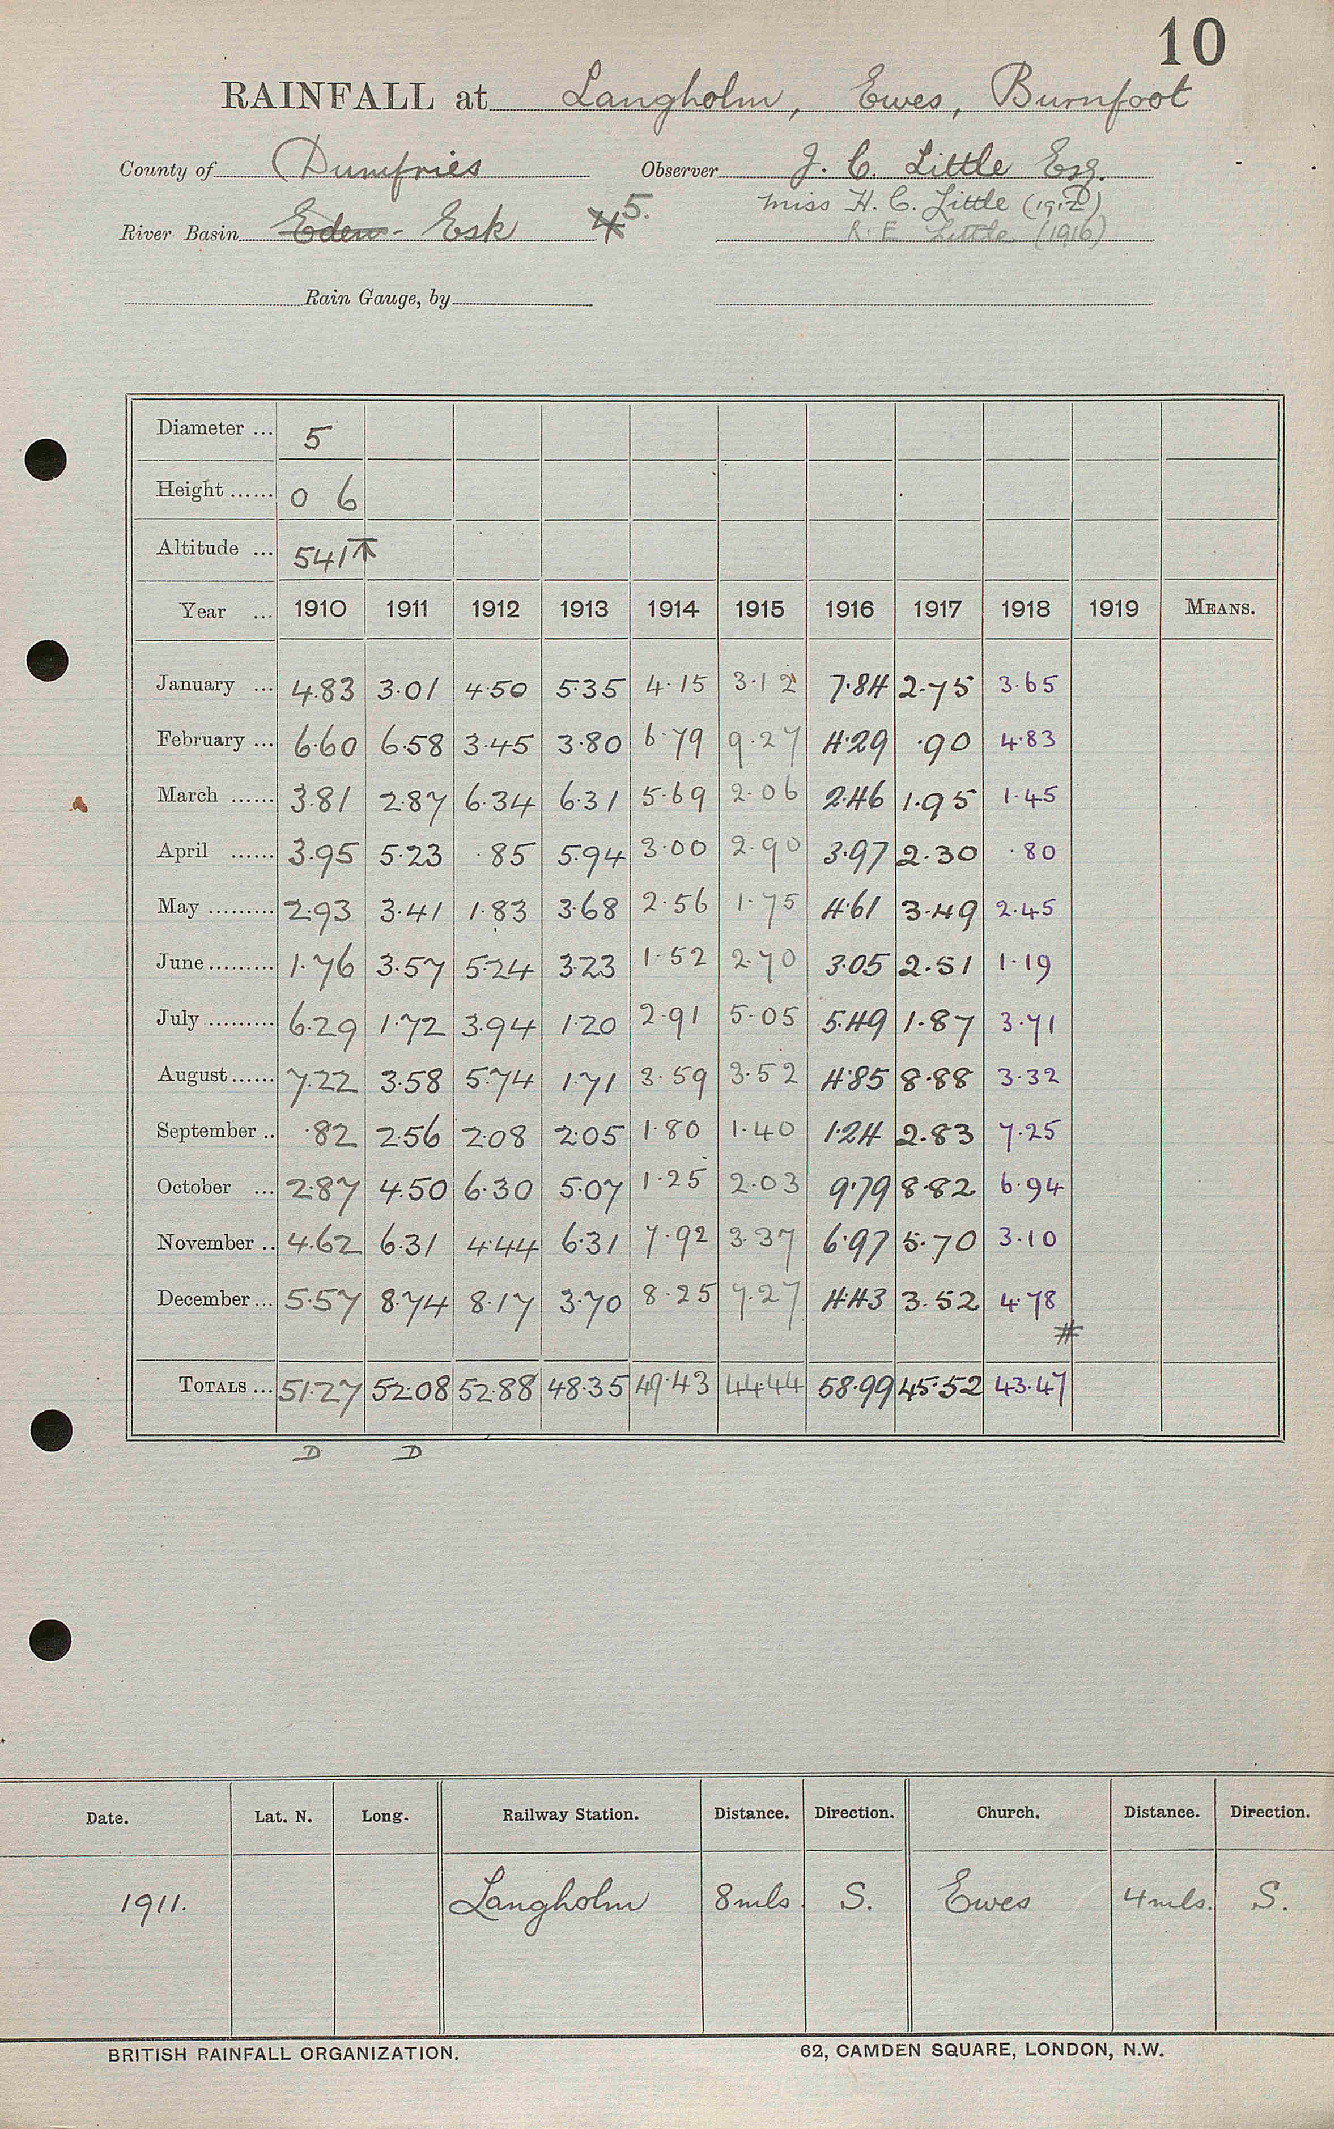 10
RAINFALL at Langholm, Ewes, Burnfoot
County of Dumfries Observer J. C. Little Esq.
Miss H. C. Little (1912)
River Basin Eden - Esk 4 5. R. E. Little (1916)
Rain Gauge, by
Diameter ... 5
Height ...... 0 6
Altitude ... 541
Year ... 1910 1911 1912 1913 1914 1915 1916 1917 1918 1919 MEANS.
January ... 4.83 3.01 4.50 5.35 4.15 3.12 7.84 2.75 3.65
February ... 6.60 6.58 3.45 3.80 6.79 9.27 4.29 .90 4.83
March ...... 3.81 2.87 6.34 6.31 5.69 2.06 2.46 1.95 1.45
April ...... 3.95 5.23 .85 5.94 3.00 2.90 3.97 2.30 .80
May ......... 2.93 3.41 1.83 3.68 2.56 1.75 4.61 3.49 2.45
June ......... 1.76 3.57 5.24 3.23 1.52 2.70 3.05 2.51 1.19
July ......... 6.29 1.72 3.94 1.20 2.91 5.05 5.49 1.87 3.71
August ...... 7.22 3.58 5.74 1.71 3.59 3.52 4.85 8.88 3.32
September .. .82 2.56 2.08 2.05 1.80 1.40 1.24 2.83 7.25
October ... 2.87 4.50 6.30 5.07 1.25 2.03 9.79 8.82 6.94
November .. 4.62 6.31 4.44 6.31 7.92 3.37 6.97 5.70 3.10
December ... 5.57 8.74 8.17 3.70 8.25 7.27 4.43 3.52 4.78
#
TOTALS ... 51.27 52.08 52.88 48.35 49.43 44.44 58.99 45.52 43.47
D D
Date. Lat. N. Long. Railway Station. Distance. Direction. Church. Distance. Direction.
1911. Langholm 8 mls. S. Ewes 4 mls. S.
BRITISH RAINFALL ORGANIZATION. 62, CAMDEN SQUARE, LONDON, N.W.